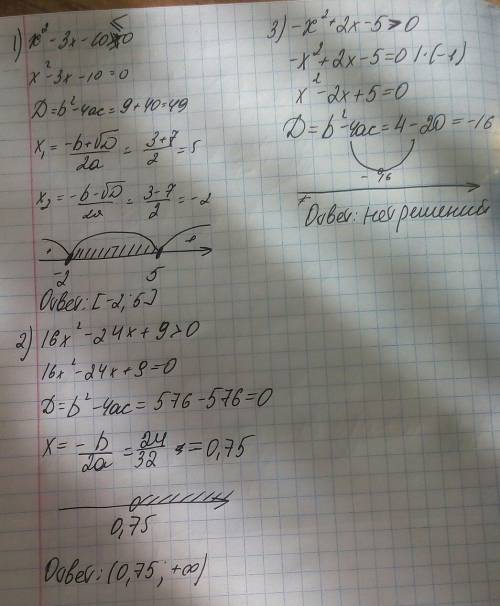 1) x² - 3x - 10 ≤ 0
x² - 3x - 10 = 0
D = b² - 4ac = 9 + 40 = 49
x₁ = (-b + √D)/2a = (3+7)/2 = 5
x₂ = (-b - √D)/2a = (3-7)/2 = -2
-2 5
Ответ: [-2; 5]
2) 16x² - 24x + 9 > 0
16x² - 24x + 9 = 0
D = b² - 4ac = 576 - 576 = 0
X = -b/2a = 24/32 = 0,75
0,75
Ответ: (0,75; +∞)
3) -x² + 2x - 5 > 0
-x² + 2x - 5 = 0 | · (-1)
x² - 2x + 5 = 0
D = b² - 4ac = 4 - 20 = -16
-16
Ответ: нет решений